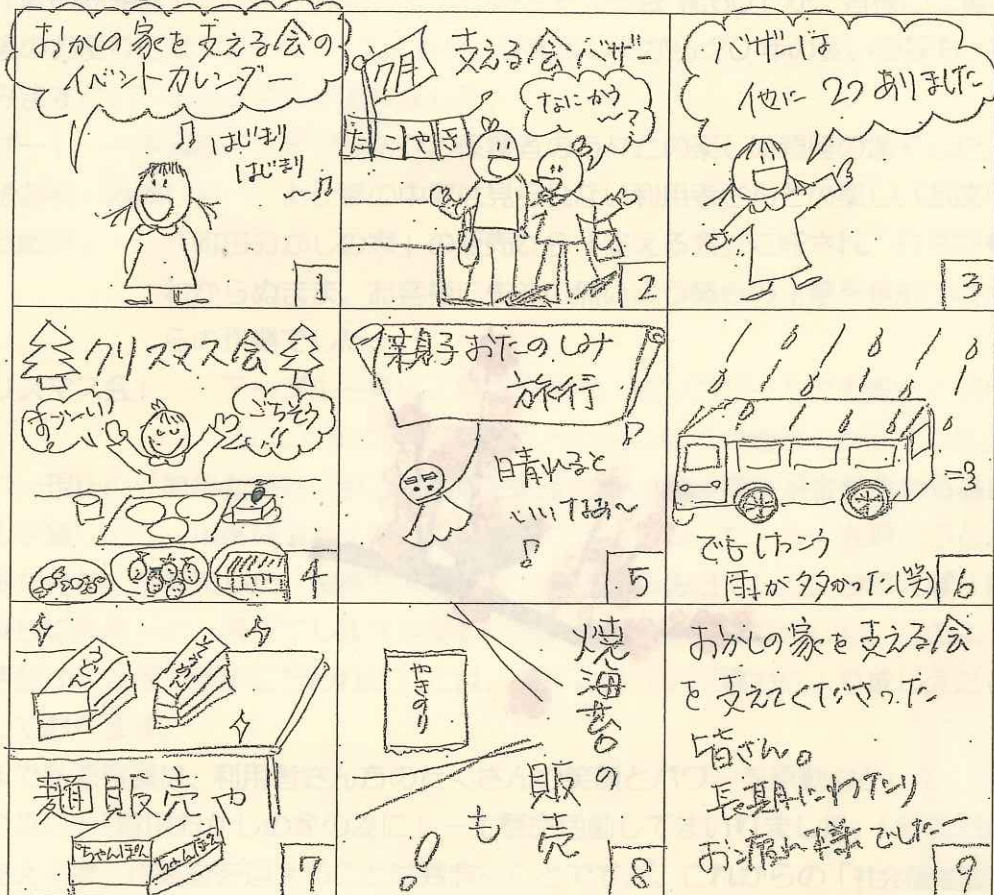 おかしの家を支える会の
イベントカレンダー
はじまり
はじまり
1
7月
支える会バザー
たこやき
なにかう
〜?
2
バザーは
他に 2つありました
3
クリスマス会
すごーい
ごちそう
4
親子おたのしみ
旅行
晴れると
いいなあ〜
5
でもけっこう
雨が多かった(笑)
6
麺販売や
ちゃんぽん
ちゃんぽん
7
焼海苔の
やきのり
販売
も
!
8
おかしの家を支える会
を支えてくださった
皆さん。
長期にわたり
お疲れ様でしたー
9